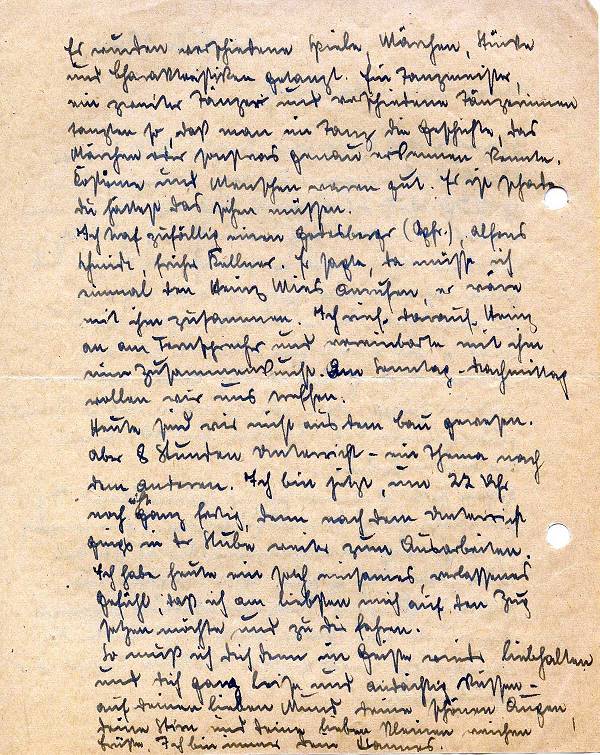 Es wurden verschiedene Spiele, Märchen, Stücke
und Charakteristiken getanzt. Ein Tanzmeister,
ein zweiter Tänzer und verschiedene Tänzerinnen
tanzten so, daß man im Tanz die Geschichte, das
Märchen oder sonstwas genau erkennen konnte.
Kostüme und Menschen waren gut. Es ist schade
du hättest das sehen müssen.
Ich traf zufällig einen Godesberger (Gfr.), Alfons
Schmidt, früher Kellner. Er sagte, da müsse ich
einmal den Heinz Mies anrufen, er wäre
mit ihm zusammen. Ich rief darauf Heinz
an am Fernsprecher und vereinbarte mit ihm
eine Zusammenkunft. Am Sonntag-Nachmittag
wollen wir uns treffen.
Heute sind wir nicht aus dem Bau gewesen.
Aber 8 Stunden Unterricht - ein Thema nach
dem anderen. Ich bin jetzt, um 22 Uhr
noch nicht ganz fertig, denn nach dem Unterricht
gings in der Stube weiter zum Ausarbeiten.
Ich habe heute ein solch einsames, verlassenes
Gefühl, daß ich am liebsten mich auf den Zug
setzen möchte und zu dir fahren.
So muß ich dich denn im Geiste wieder liebhalten
und dich ganz leise und andächtig küssen -
auf deinen lieben Mund deine schönen Augen,
deine Stirn und deine lieben kleinen weichen
Ich bin immer dein Hannes.